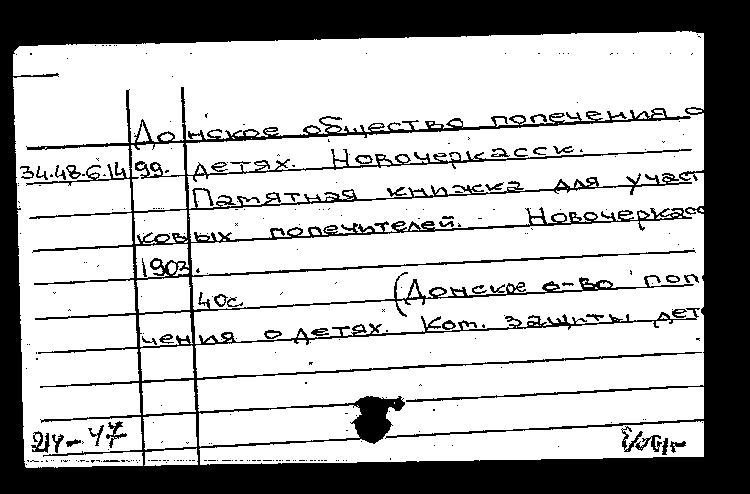 Донское общество попечения о
34.48.6.14 99. детях. Новочеркасск.
Памятная книжка для участ
ковых попечителей. Новочеркасс
1903.
40с. (Донское о-во попе
чения о детях. Ком. защиты дет
214-47